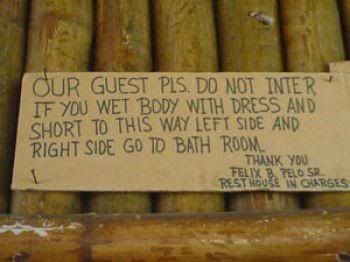 OUR GUEST PLS. DO NOT INTER
IF YOU WET BODY WITH DRESS AND
SHORT TO THIS WAY LEFT SIDE AND
RIGHT SIDE GO TO BATH ROOM.
THANK YOU
FELIX B. PELO SR.
REST HOUSE IN CHARGES